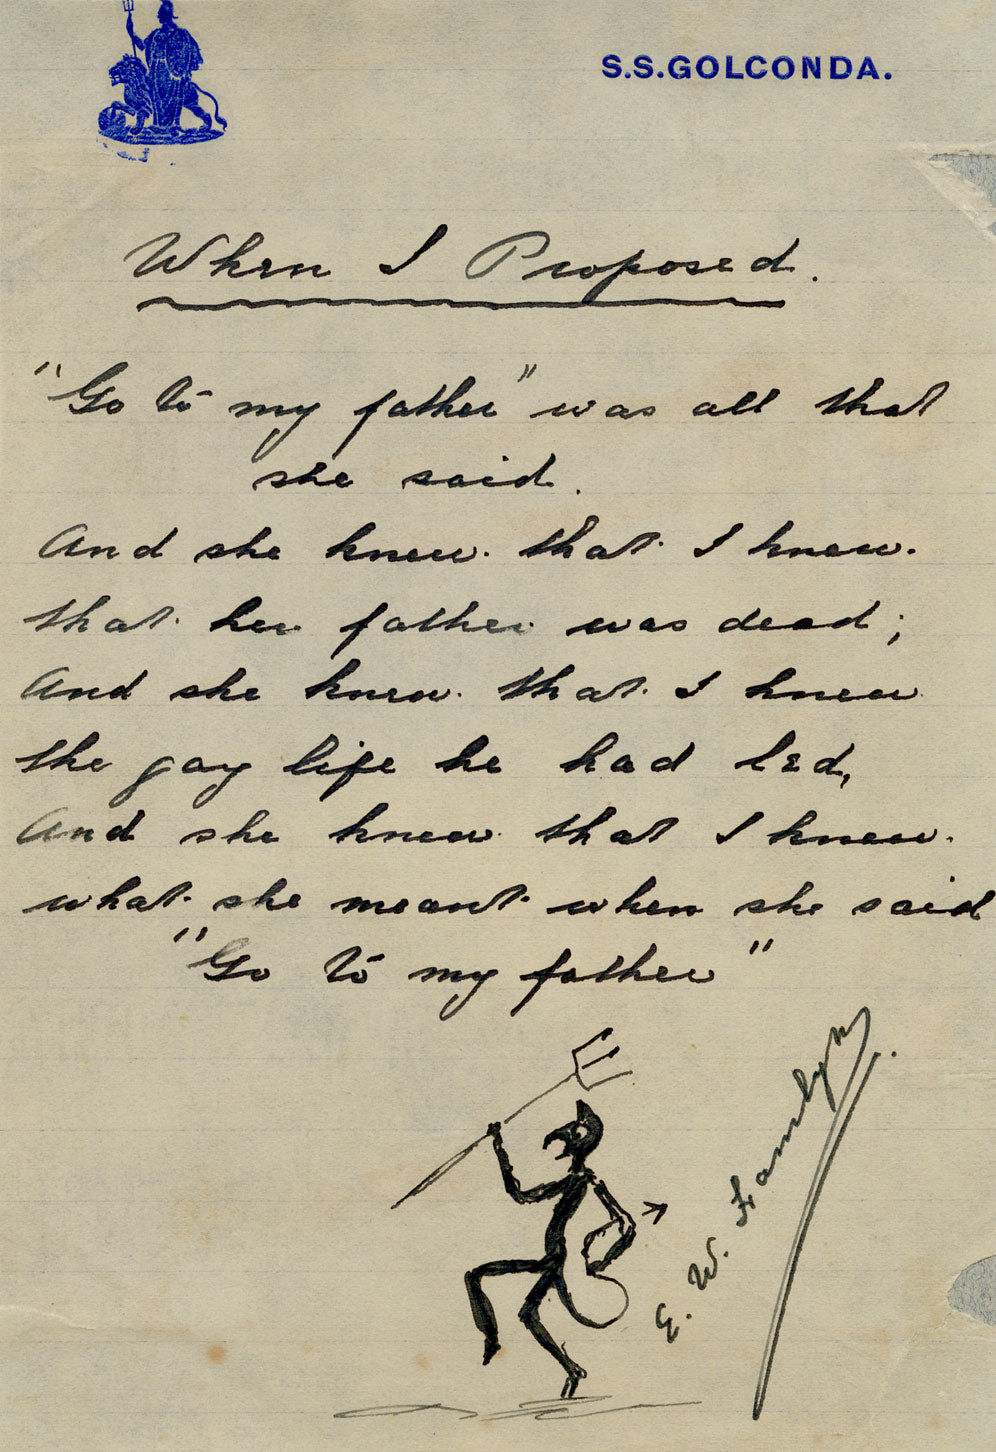 S.S.GOLCONDA.
When I Proposed.
"Go to my father" was all that
she said.
And she knew that I knew.
that her father was dead;
And she knew that I knew
the gay life he had led,
And she knew that I knew.
what she meant when she said
"Go to my father"
E. W.